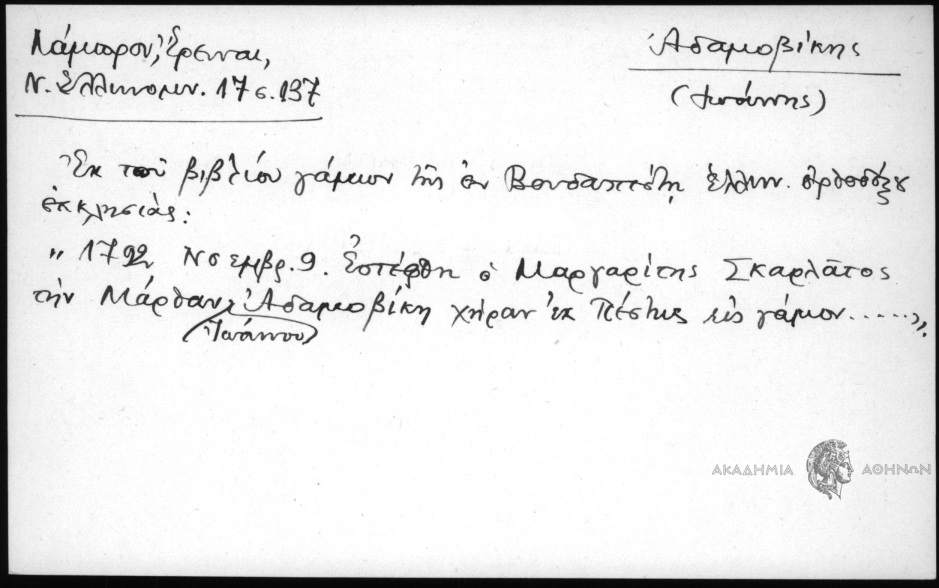 Λάμπρου, Έρευναι,
Ν. Ἑλληνομν. 17 σ. 137
Ἀδαμοβίκης
(Ἰωάννης)
Ἐκ τοῦ βιβλίου γάμων τῆς ἐν Βουδαπέστῃ ἑλλην. ὀρθοδόξου
ἐκκλησίας:
"1792 Νοεμβρ. 9. Ἐστέφθη ὁ Μαργαρίτης Σκαρλᾶτος
τὴν Μάρθαν Ἰωάννου Ἀδαμοβίκη χήραν ἐκ Πέστης εἰς γάμον.....".
ΑΚΑΔΗΜΙΑ ΑΘΗΝΩΝ